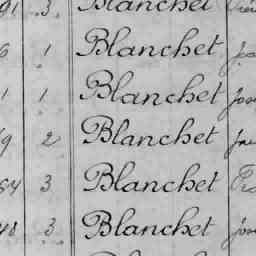 91 3 Blanchet
6 1 Blanchet
1 1 Blanchet
9 2 Blanchet
54 3 Blanchet
48 3 Blanchet